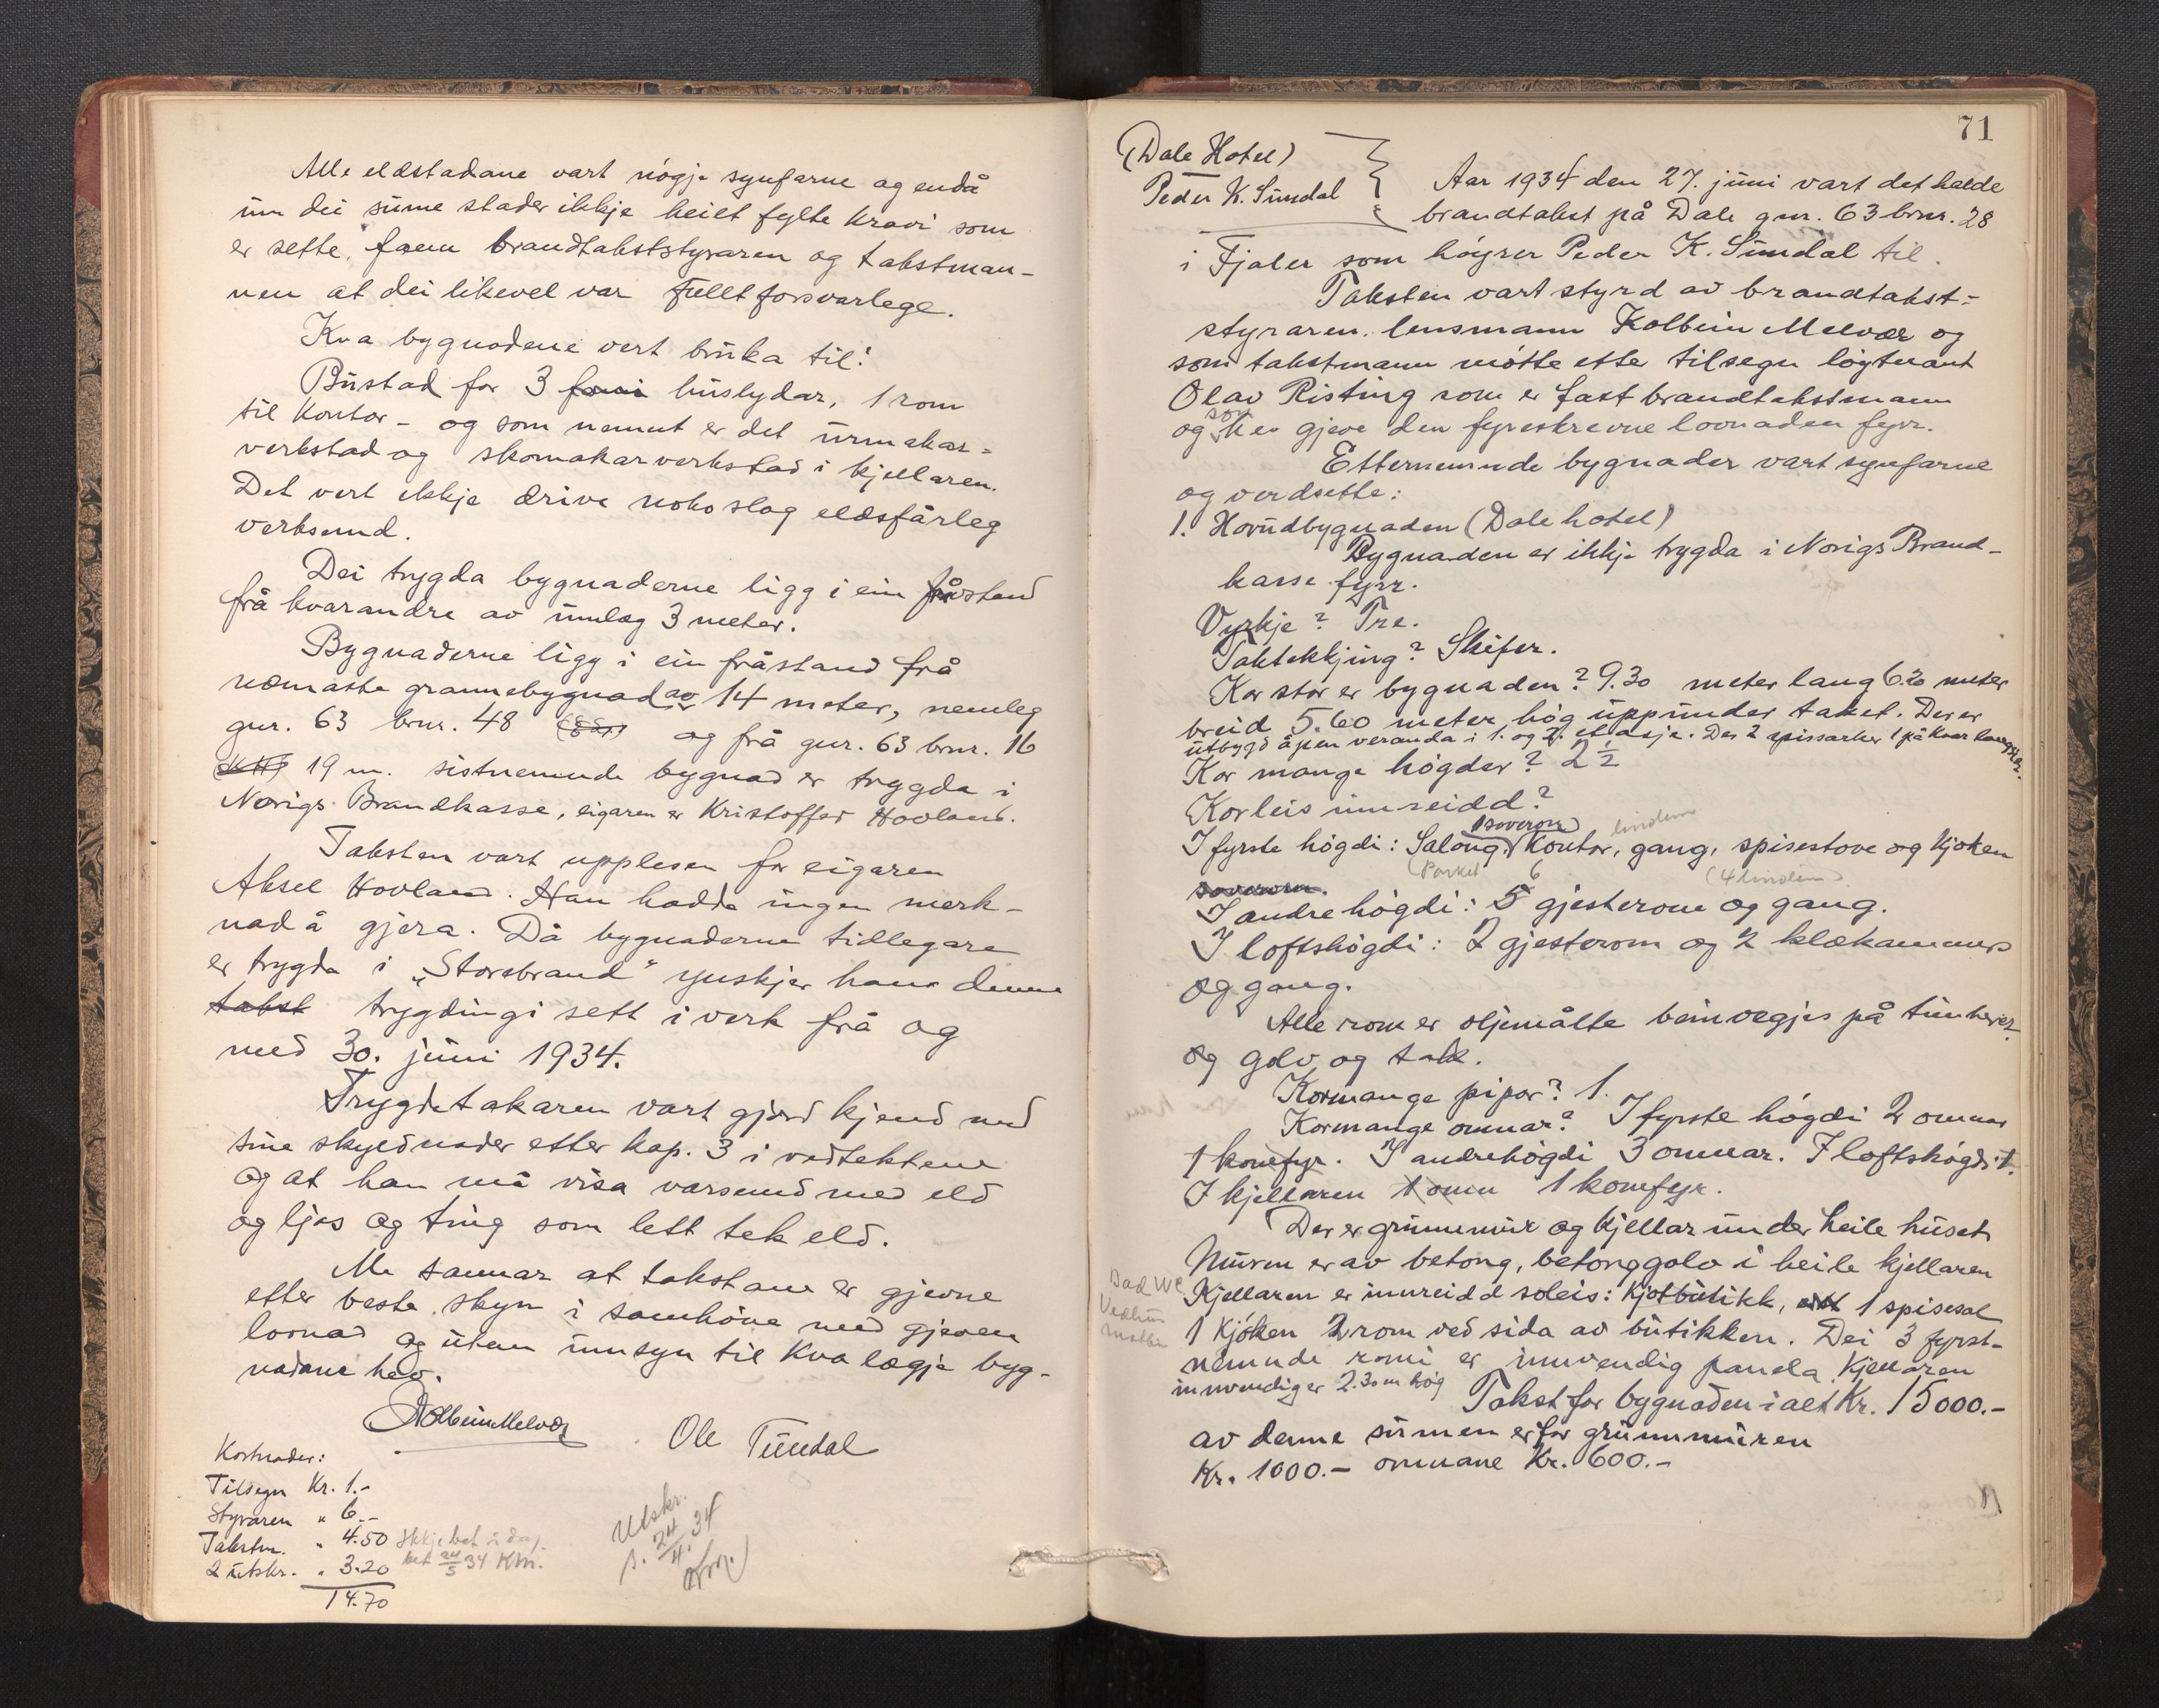 Alle eldstadane vart nógje synfarne og endå
um dei sume stader ikkje heilt fylte kravi som
er sette, fann brandtakststyraren og takstman-
nen at dei likevel var fullt forsvarlege.
Kva bygnadene vert bruka til:
Bustad for 3 huslydar, 1 rom
til kontor - og som nemnt er det urmakar-
verkstad og skomakarverkstad i kjellaren.
Det vert ikkje drive noko slag eldsfårleg
verksemd.
Dei trygda bygnaderne ligg i ein fråstand
frå kvarandre av umlag 3 meter.
Bygnaderne ligg i ein fråstand frå
næmaste grannebygnad av 14 meter, nemleg
gnr. 63 brnr. 48 og frå gnr. 63 brnr. 16
19 m. sistnemnde bygnad er trygda i
Norigs Brandkasse, eigaren er Kristoffer Hovland.
Taksten vart upplesen for eigaren
Aksel Hovland. Han hadde ingen merk-
nad å gjera. Då bygnaderne tidlegare
er trygda i „Storebrand" ynskjer han denne
takst trygdingi sett i verk frå og
med 30. juni 1934.
Trygdetakaren vart gjord kjend med
sine skyldnader etter kap. 3 i vedtektene
og at han må visa varsemd med eld
og ljos og ting som lett tek eld.
Me sannar at takstane er gjevne
etter beste skyn i samhöve med gjeven
lovnad og utan umsyn til kva lægje byg-
nadane hev.
Kolbein Melvær
Ole Tundal
Kostnader:
Tilsegn Kr. 1.-
Styraren " 6.-
Takstm. " 4.50 Ikkje bet i dag.
2 utskr. " 3.20 bet 24/5 34 KM.
14.70
Utskr.
s. 24/4. 34
71
(Dale Hotel)
Peder K. Sundal
Aar 1934 den 27. juni vart det halde
brandtakst på Dale gnr. 63 brnr. 28
i Fjaler som høyrer Peder K. Sundal til.
Taksten vart styrd av brandtakst-
styraren. lensmann Kolbein Melvær og
som takstmann møtte etter tilsegn løytnant
Olav Risting som er fast brandtakstmann
og som hev gjeve den fyreskrevne lovnaden fyrr.
Etternemnde bygnader vart synfarne
og verdsette:
1. Hovudbygnaden (Dale hotel)
Bygnaden er ikkje trygda i Norigs Brand-
kasse fyrr.
Vyrkje? Tre.
Taktekkjing? Skifer.
Kor stor er bygnaden? 9.30 meter lang 6.20 meter
breid 5.60 meter hög uppunder taket. Der er
utbygd åpen veranda i 1. og 2. etasje. Der 2 spissarker 1 på kvar langside.
Kor mange högder? 2 1/2
Korleis innreidd?
1 soverom linoleum
I fyrste högdi: Salong, Kontor, gang, spisestove og kjöken
soverom. (Parket 6 (4 linoleum)
I andre högdi: 5 gjesterom og gang.
I loftshögdi: 2 gjesterom og 2 klækammers
og gang.
Alle rom er oljemålte beinvegjes på timber
og golv og tak.
Kormange pipor? 1.
Kormange omnar? I fyrste högdi 2 omnar
1 komfyr. I andrehögdi 3 omnar. I loftshögdi 1.
I kjellaren 1 omn 1 komfyr.
Der er grunnmur og kjellar under heile huset.
Muren er av betong, betonggolv i heile kjellaren
Bad WC
Kjellaren er innreidd soleis: kjøtbutikk, 1 spisesal
1 kjöken 2 rom ved sida av butikken. Dei 3 fyrst-
nemnde romi er innvendig panela. Kjellaren
innvendig er 2.30 m hög
Takst for bygnaden i alt Kr. 15000.-
av denne sumen er for grunnmuren
Kr. 1000.- omnane Kr. 600.-